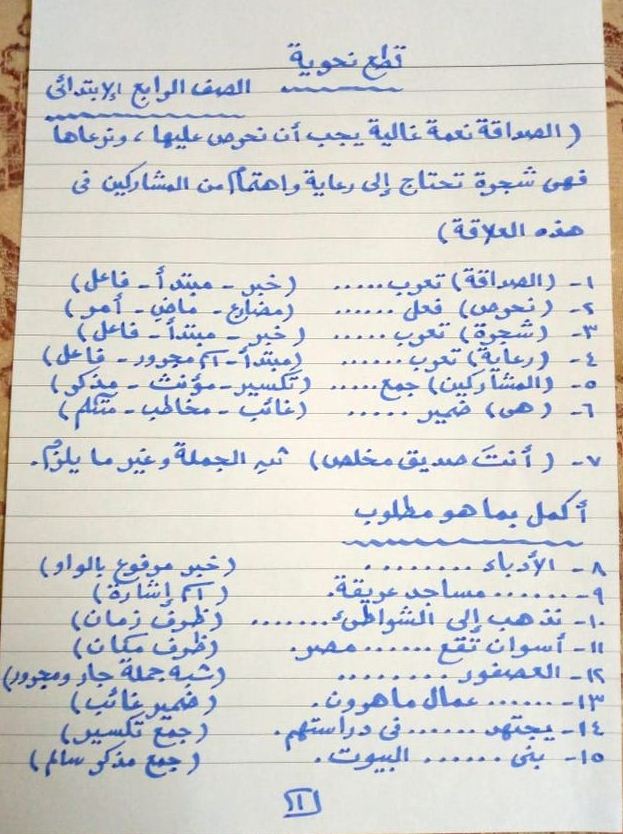 قطع نحوية
الصف الرابع الإبتدائى
( الصداقة نعمة غالية يجب أن نحرص عليها ، ونرعاها
فهى شجرة تحتاج إلى رعاية واهتمام من المشاركين فى
هذه العلاقة )
١- (الصداقة) تعرب ...... (خبر - مبتدأ - فاعل)
٢- (نحرص) فعل ...... (مضارع - ماضٍ - أمر)
٣- (شجرة) تعرب ...... (خبر - مبتدأ - فاعل)
٤- (رعاية) تعرب ...... (مبتدأ - اسم مجرور - فاعل)
٥- (المشاركين) جمع ..... (تكسير - مؤنث - مذكر)
٦- (هى) ضمير ..... (غائب - مخاطب - متكلم)
٧- ( أنتَ صديق مخلص ) ثنِّ الجملة وغير ما يلزم.
أكمل بما هو مطلوب
٨- الأدباء ........ (خبر مرفوع بالواو)
٩- ....... مساجد عريقة. (اسم إشارة)
١٠- نذهب إلى الشواطئ ....... (ظرف زمان)
١١- أسوان تقع ...... مصر. (ظرف مكان)
١٢- العصفور ........ (شبه جملة جار ومجرور)
١٣- ...... عمال ماهرون. (ضمير غائب)
١٤- يجتهد ...... فى دراستهم. (جمع تكسير)
١٥- بنى ...... البيوت. (جمع مذكر سالم)
١١